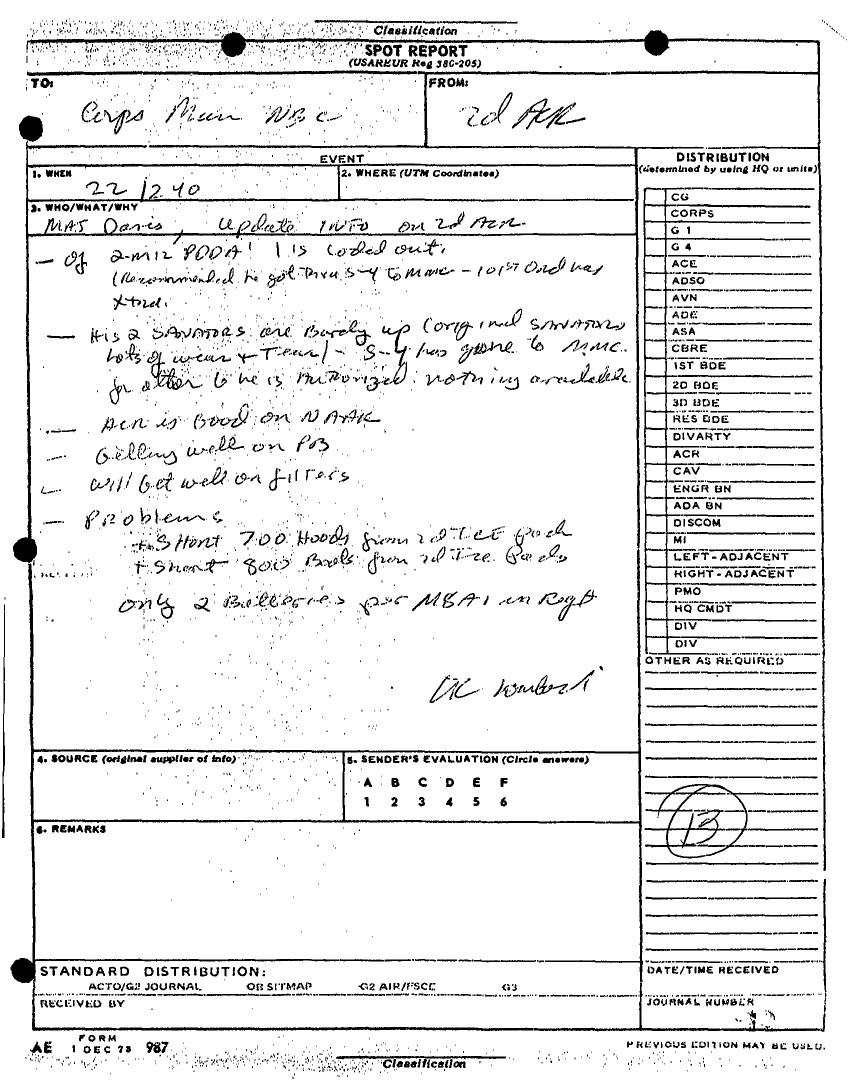 Classification
SPOT REPORT
(USAREUR Reg 380-205)
TO:
Corps Main NBC
FROM:
2d ACR
EVENT
1. WHEN
22 1240
2. WHERE (UTM Coordinates)
3. WHO/WHAT/WHY
MAJ Davis, Update INFO on 2d ACR
— Of 2-M12 PDDA' 1 is Coded out.
(Recommended he go thru S-4 to MMC - 101st Ord has
— His 2 SANATORS are Barely up (original SANATORS
Lots of wear + Tear) - S-4 has gone to MMC
for other 6 he is Authorized. nothing available
— ACR is Good on NAAK
— Getting well on PB
— Will Get well on filters
— Problems
+ Short 700 Hoods from 2d
+ Short 800 Boots from 2d
only 2 Batteries per M8A1 in Regt
4. SOURCE (original supplier of info)
5. SENDER'S EVALUATION (Circle answers)
A B C D E F
1 2 3 4 5 6
6. REMARKS
STANDARD DISTRIBUTION:
ACTO/G2 JOURNAL OB SITMAP G2 AIR/FSCE G3
RECEIVED BY
DISTRIBUTION
(determined by using HQ or units)
CG
CORPS
G 1
G 4
ACE
ADSO
AVN
ADE
ASA
CBRE
1ST BDE
2D BDE
3D BDE
RES BDE
DIVARTY
ACR
CAV
ENGR BN
ADA BN
DISCOM
MI
LEFT-ADJACENT
RIGHT-ADJACENT
PMO
HQ CMDT
DIV
DIV
OTHER AS REQUIRED
13
DATE/TIME RECEIVED
JOURNAL NUMBER
AE FORM 1 DEC 73 987
PREVIOUS EDITION MAY BE USED.
Classification